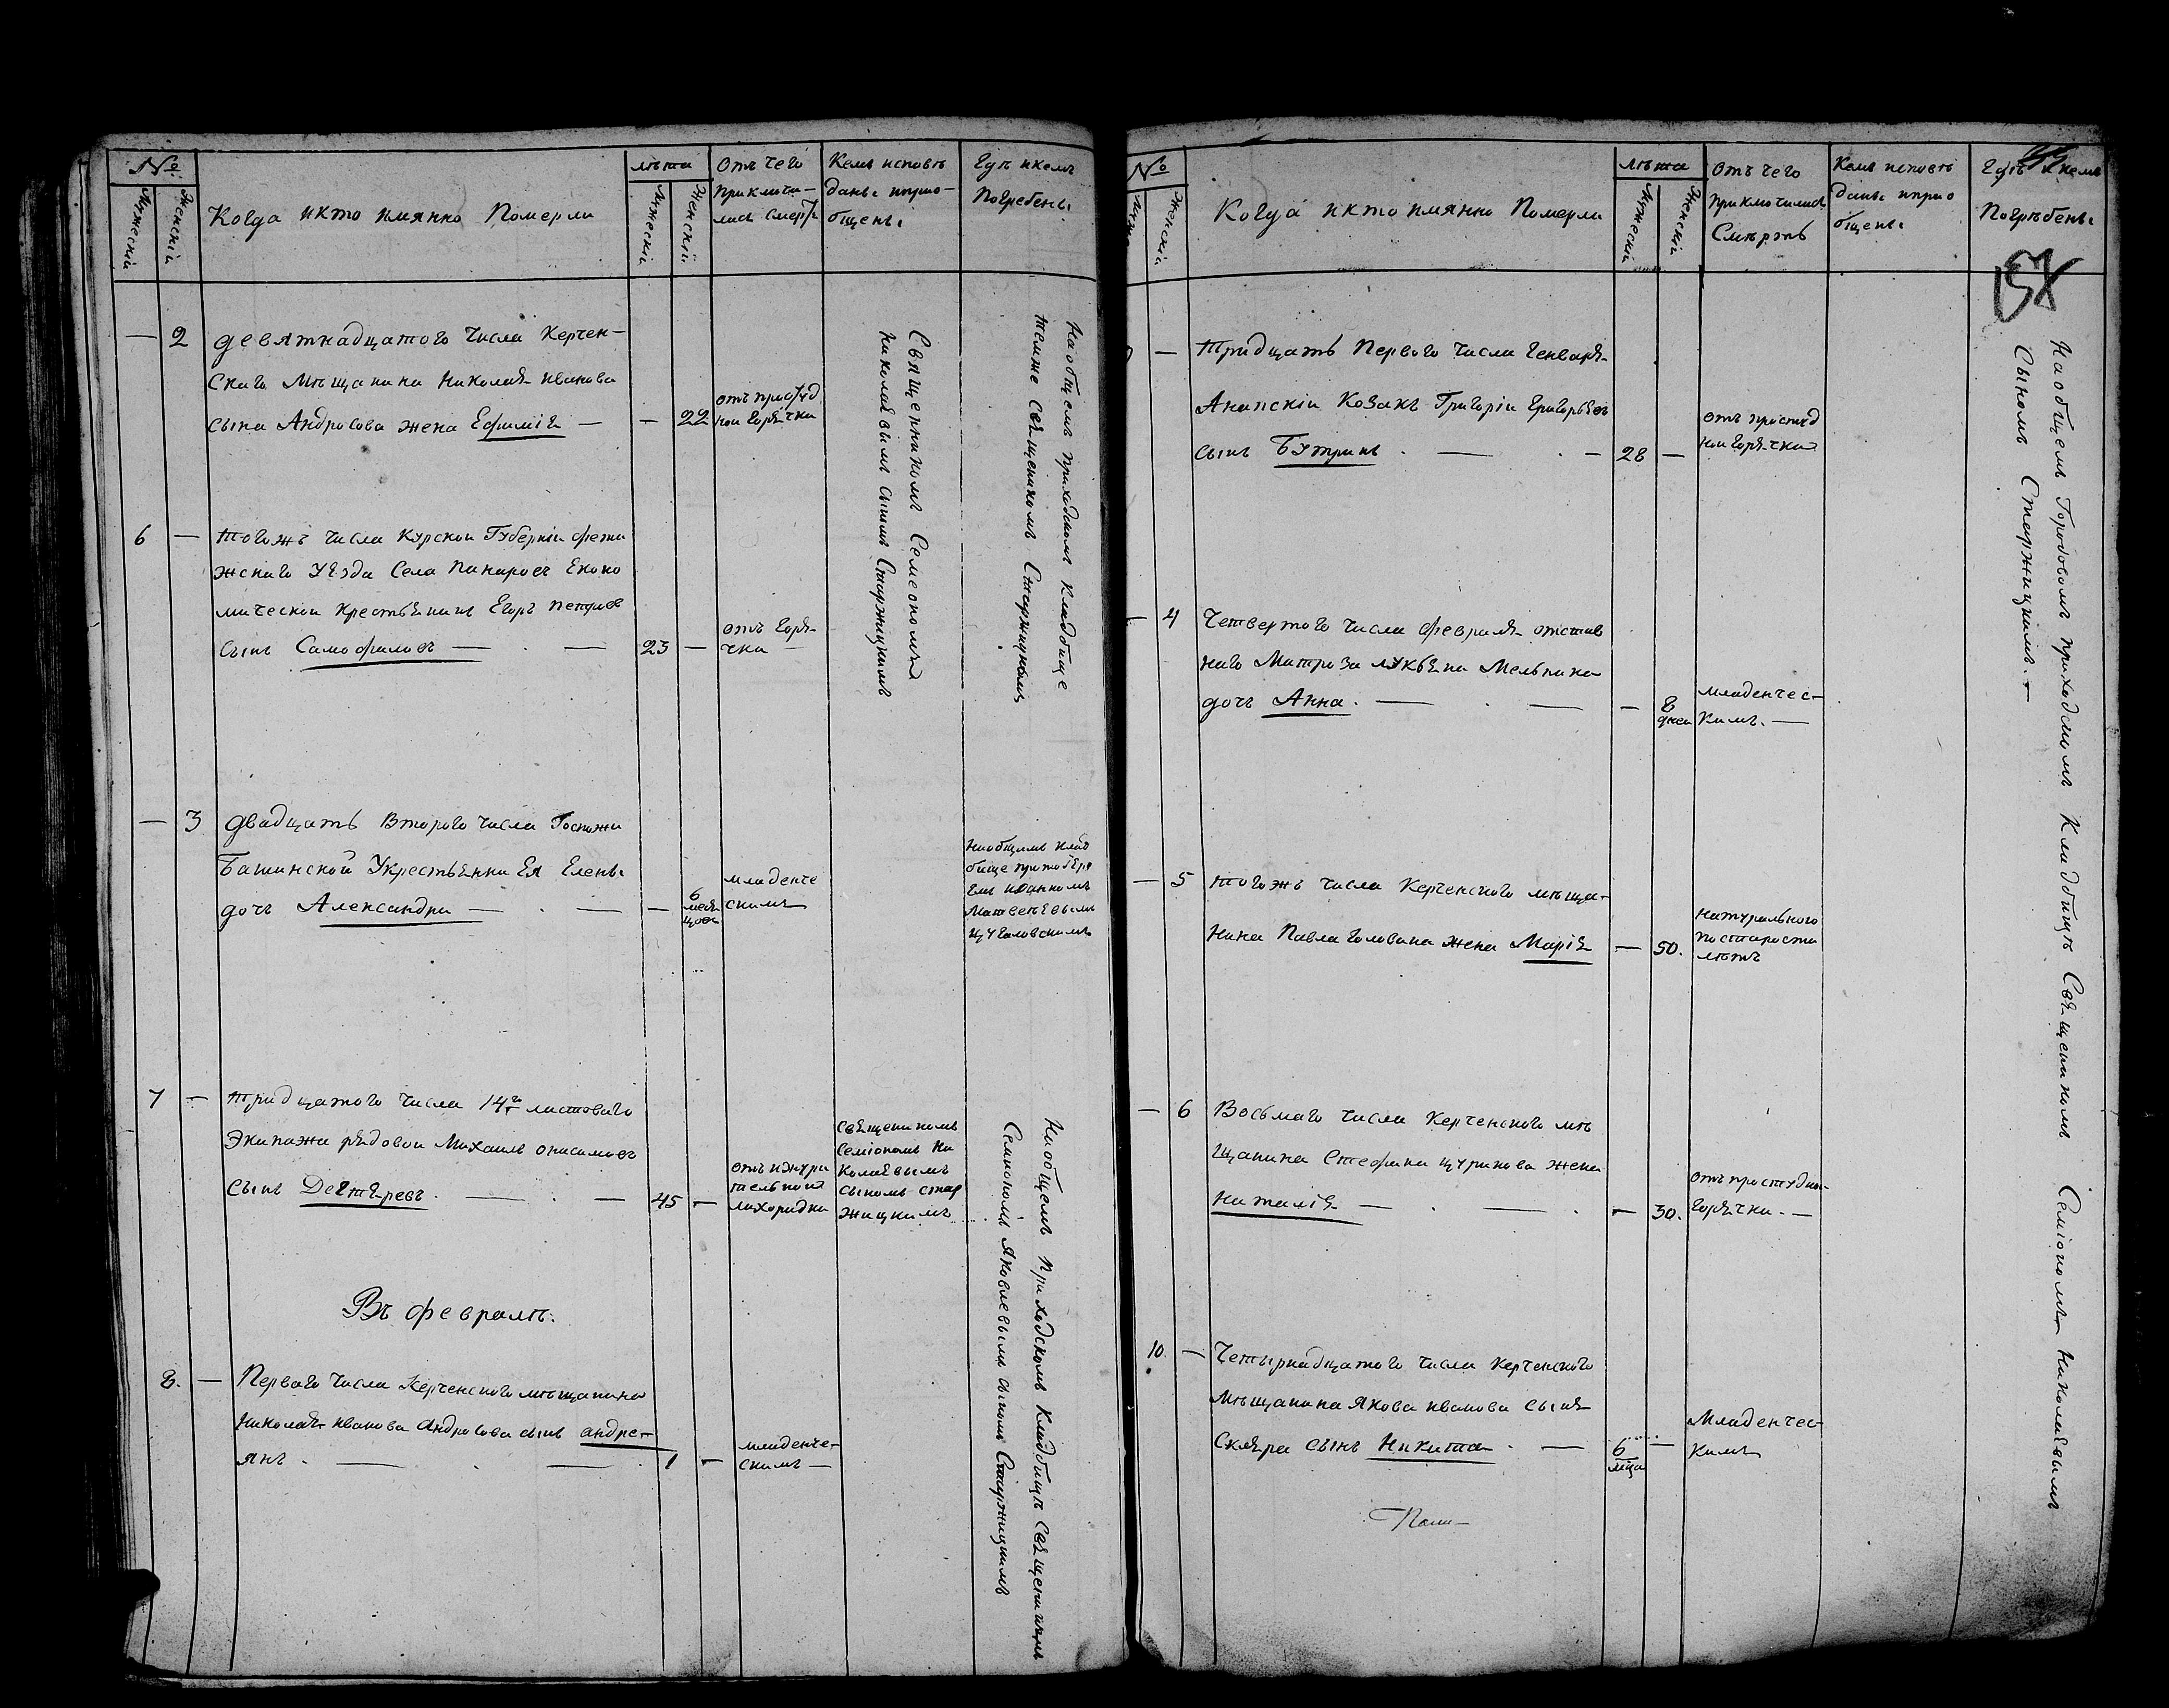 №
Мужескій
Женскій
Когда икто имянно Померли
лѣта
Мужескій
Женскій
Отъ чего
приключи-
лись смерть
Кемъ исповѣ
даны иприо-
общены
Гдѣ икемъ
Погребены
— 2
девятнадцатого числа Керчен-
скаго Мѣщанина Николая иванова
сына Андросова жена Ефимія —
— 22
отъ простуд
ной Горячки
Священникомъ Семеономъ
Николаевымъ сыномъ Стержицкимъ
Наобщемъ приходскомъ кладбище
темже священикомъ Стержицкимъ
6 —
тогожъ числа Курской Губерніи фети
жскаго Уезда Села Панаровъ Еконо
мическои крестьянинъ Егоръ петровъ
сынъ Самофаловъ — . —
23 —
отъ Горя-
чки —
— 3
двадцать Второго числа Госпожи
Башинской Укрестьянки Ея Елены
дочъ Александра — . —
— 6
меся
цовъ
младенче
скимъ
Наобщемъ клад
бище протоїере
емъ иоанномъ
Матвеевымъ
цугаловскимъ
7 —
тридцатого числа 14го ластоваго
Экипажа рядовои Михаилъ онисимовъ
сынъ Дегтяревъ . — . —
45 —
отъ изнури
тельной
лихорадки
священикомъ
семіономъ Ни
колаевымъ
сыномъ стер
жицкимъ
Наобщемъ Приходскомъ Кладбищѣ Священикомъ
Семиономъ Яковлевымъ сыномъ Стержицкимъ
Въ февралѣ.
8. —
Перваго числа Керченского мѣщанина
Николая иванова Андросова сынъ андре-
янъ . — . — .
1 —
младенче-
скимъ —
№
Женскій
Когда икто имянно Померли
лѣта
Мужескій
Женскій
отъ чего
приключилась
Смѣрть
Кемъ исповѣ
даны иприо
бщены
Гдѣ икемъ
Погрѣбены
—
тридцать Первого числа Генваря
Анапскіи Козакъ Григоріи Григорьевъ
сынъ Бутринъ . — . —
28 —
отъ простуд
нои Горячки
Наобщемъ Городовомъ приходскомъ Кладбищѣ Священикомъ Семіономъ Николаевымъ
Сыномъ Стержицкимъ. —
— 4
Четвертого числа февраля отстав
наго Матроза лукьяна Мельника
дочъ Анна . — . —
— 8
днеи
младенчес-
кимъ. —
— 5
тогожъ числа Керченского мѣща-
нина Павла Голована жена Марія
— 50.
натурально
постарости
лѣтъ
— 6
Восьмаго числа Керченского мѣ
щанина Стефана цурикова жена
Наталія — . — .
— 30.
отъ простудной
Горячки. —
10. —
Четырнадцатого числа Керченского
Мѣщанина Якова иванова сына
Скляра сынъ Никита . —
6 —
мца
Младенчес-
кимъ